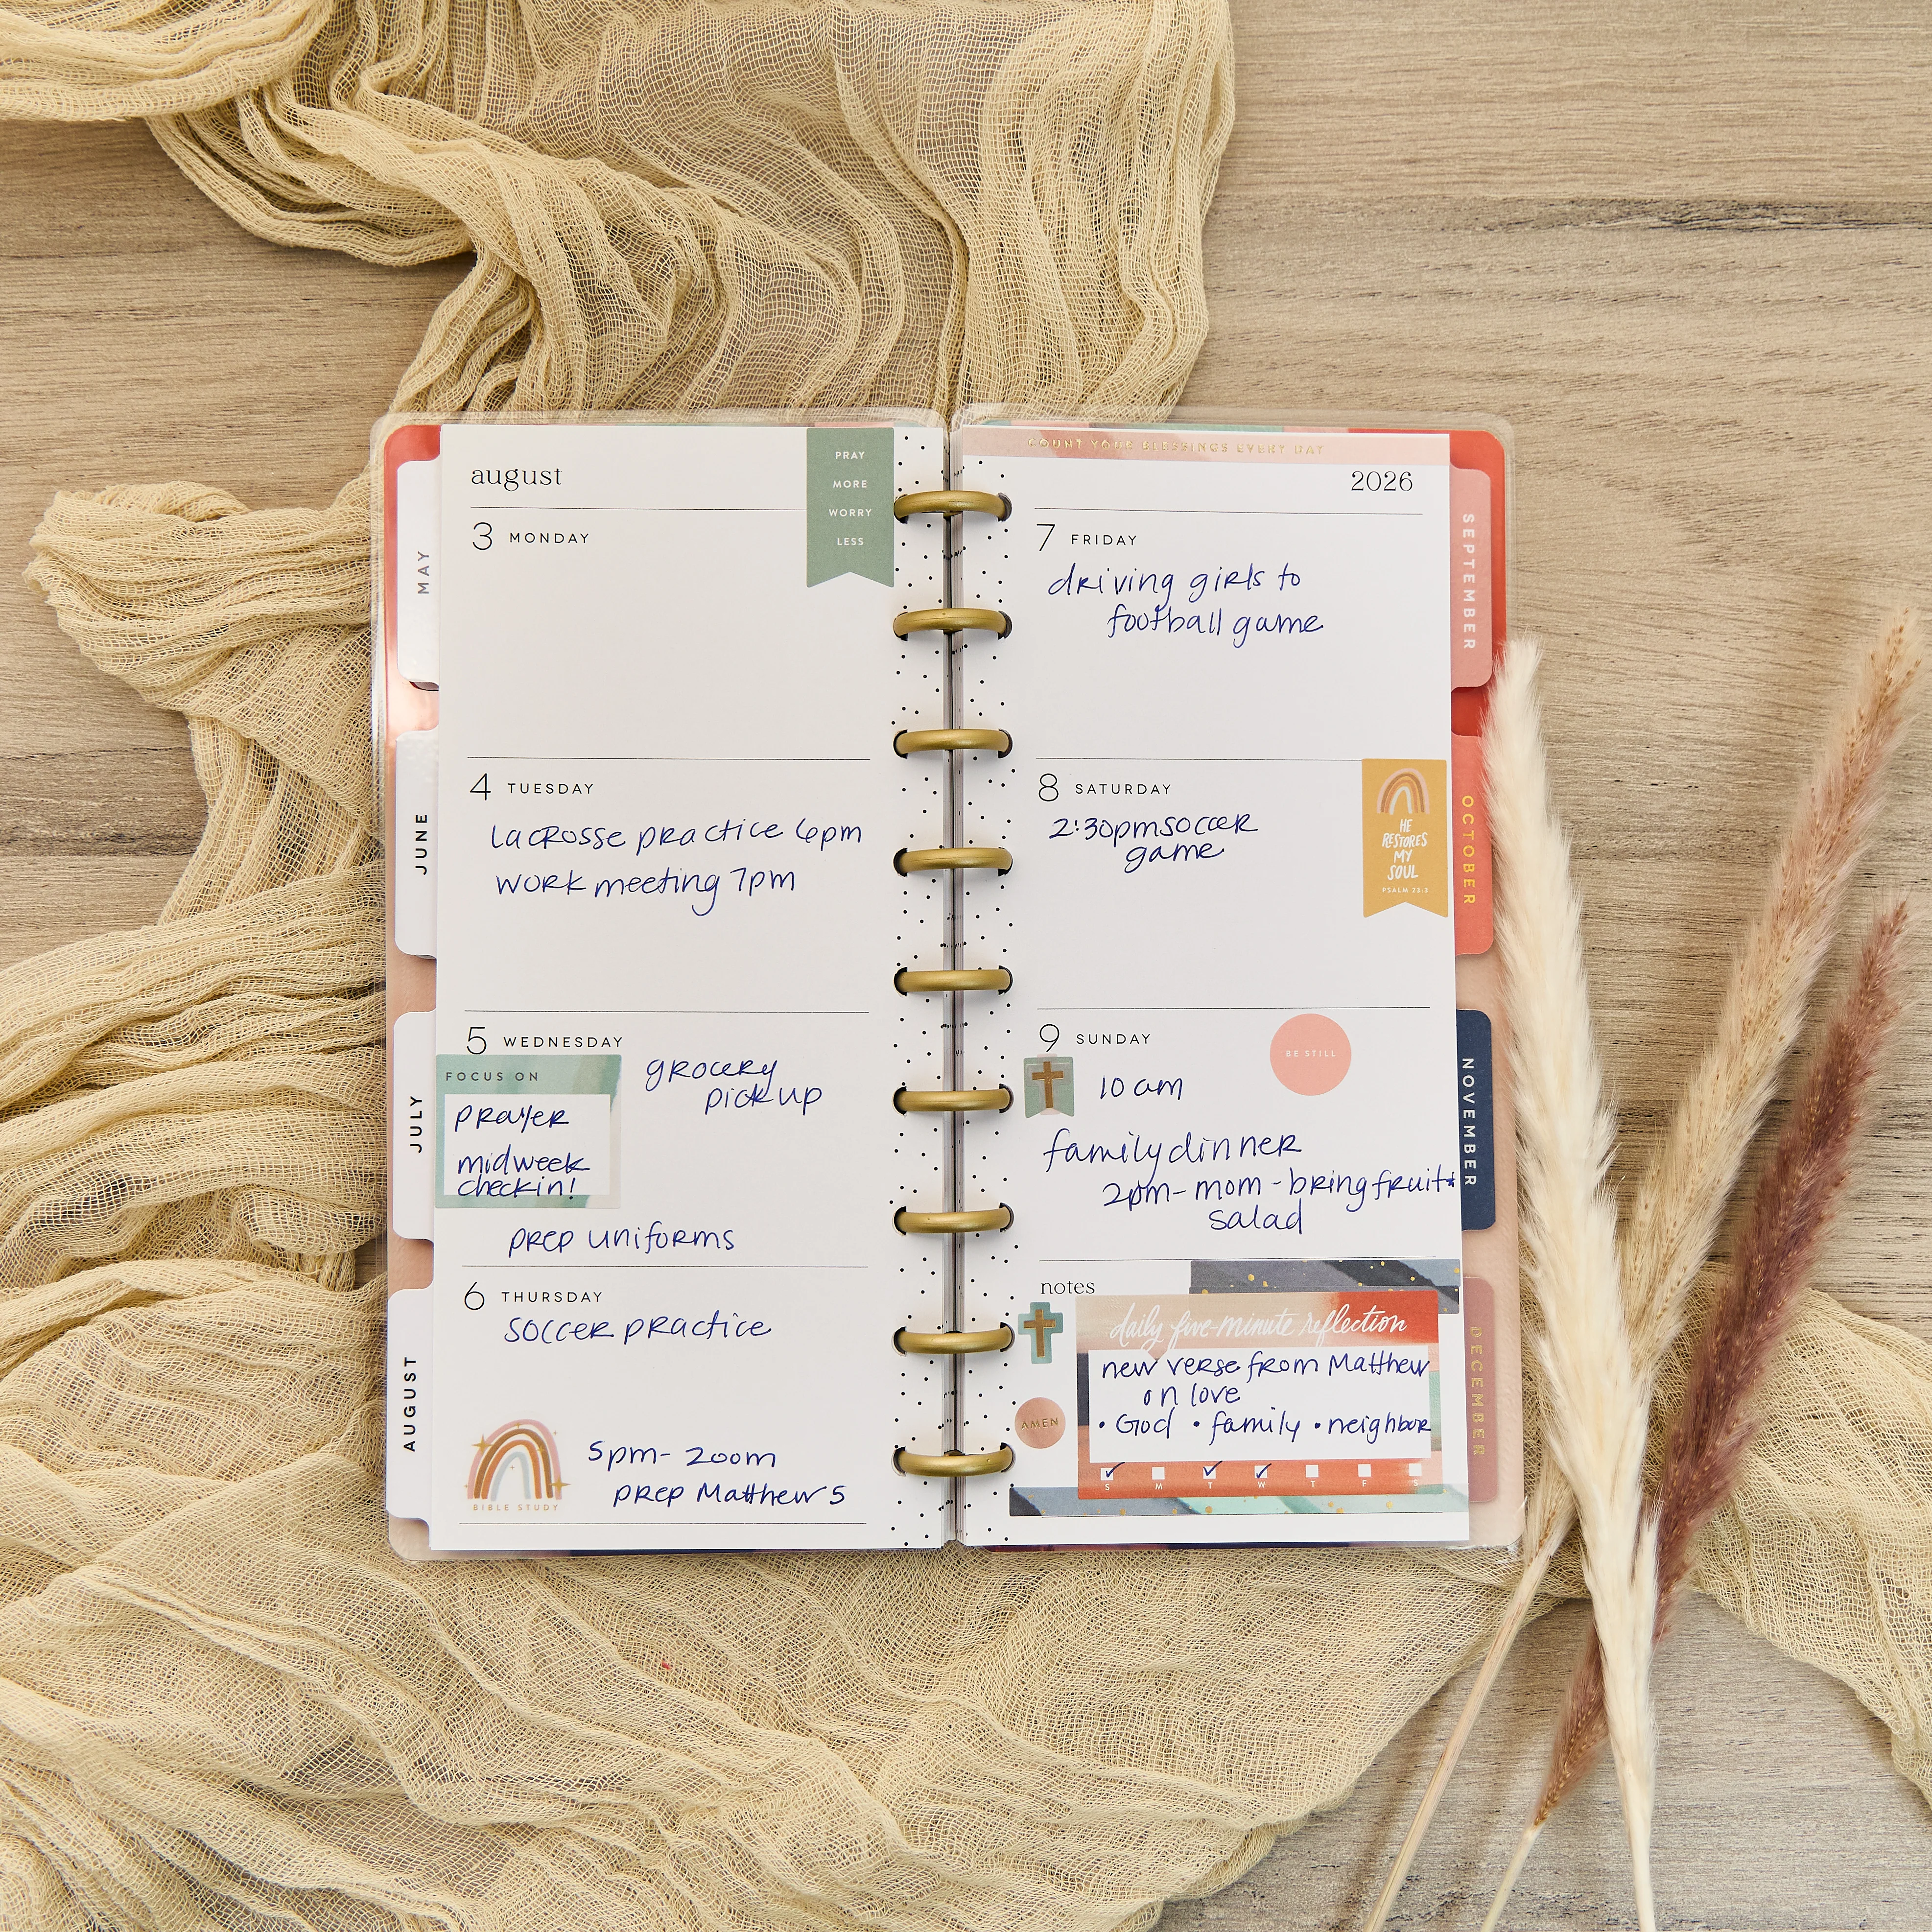 august
PRAY
MORE
WORRY
LESS
3 MONDAY
4 TUESDAY
Lacrosse practice 6pm
work meeting 7pm
5 WEDNESDAY
FOCUS ON
prayer
midweek
checkin!
grocery
pickup
prep uniforms
6 THURSDAY
soccer practice
BIBLE STUDY
5pm- zoom
prep Matthew 5
MAY
JUNE
JULY
AUGUST
COUNT YOUR BLESSINGS EVERY DAY
2026
7 FRIDAY
driving girls to
football game
8 SATURDAY
2:30pm soccer
game
HE
RESTORES
MY
SOUL
PSALM 23:3
9 SUNDAY
BE STILL
10 am
family dinner
2pm- mom - bring fruit*
salad
notes
daily five-minute reflection
new verse from Matthew
on love
• God • family • neighbor
AMEN
S M T W T F S
SEPTEMBER
OCTOBER
NOVEMBER
DECEMBER